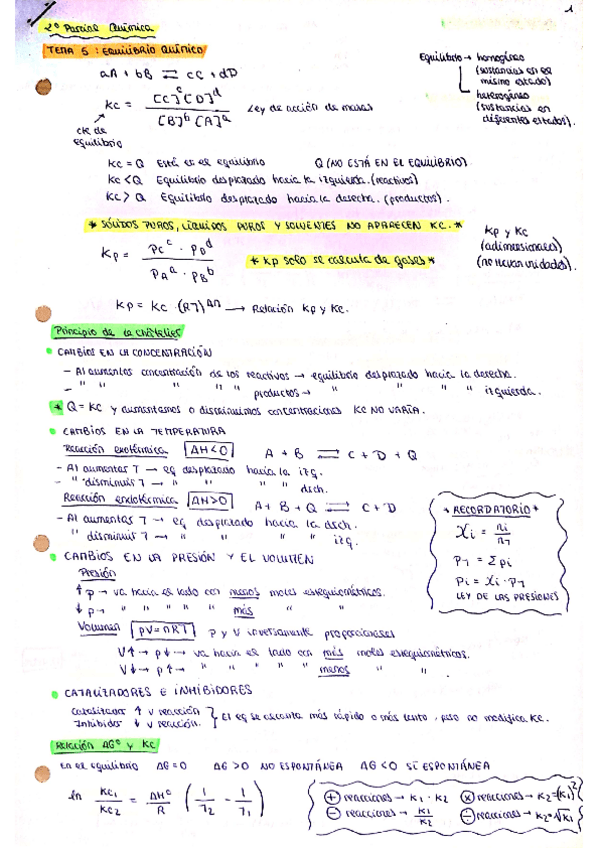 1
2º Parcial Química
TEMA 5: EQUILIBRIO QUÍMICO
aA + bB ⇌ cC + dD
Equilibrio → homogéneo
(sustancias en el
mismo estado)
→ heterogéneo
(sustancias en
diferentes estados).
Kc = [C]^c [D]^d / [B]^b [A]^a Ley de acción de masas
cte de
equilibrio
Kc = Q Está en el equilibrio Q (NO ESTÁ EN EL EQUILIBRIO)
Kc < Q Equilibrio desplazado hacia la izquierda. (reactivos)
Kc > Q Equilibrio desplazado hacia la derecha. (productos).
* SÓLIDOS PUROS, LÍQUIDOS PUROS Y SOLVENTES NO APARECEN KC. *
Kp = Pc^c · PD^d / PA^a · PB^b
* Kp solo se calcula de gases *
Kp y Kc
(adimensionales)
(no llevan unidades).
Kp = Kc · (RT)^Δn → Relación Kp y Kc.
Principio de Le Châtelier
CAMBIOS EN LA CONCENTRACIÓN
- Al aumentar concentración de los reactivos → equilibrio desplazado hacia la derecha.
- " " " " " productos → " " " " izquierda.
* Q = KC y aumentamos o disminuimos concentraciones KC NO VARÍA.
CAMBIOS EN LA TEMPERATURA
Reacción exotérmica ΔH<0 A + B ⇌ C + D + Q
- Al aumentar T → eq desplazado hacia la izq.
- " disminuir T → " " " " dsch.
Reacción endotérmica ΔH>0 A + B + Q ⇌ C + D
- Al aumentar T → eq desplazado hacia la dsch.
" disminuir T → " " " " izq.
* RECORDATORIO *
Xi = ni / nT
PT = Σpi
Pi = Xi · PT
LEY DE LAS PRESIONES
CAMBIOS EN LA PRESIÓN Y EL VOLUMEN
Presión
↑ p → va hacia el lado con menos moles estequiométricos.
↓ p → " " " " " más " "
Volumen PV=nRT P y V inversamente proporcionales
V↑ → p↓ → va hacia el lado con más moles estequiométricos.
V↓ → p↑ → " " " " " menos " "
CATALIZADORES E INHIBIDORES
Catalizador ↑ v reacción.
Inhibidor ↓ v reacción. } El eq se alcanza más rápido o más lento, pero no modifica KC.
Relación ΔGº y KC
En el equilibrio ΔG=0 ΔG>0 NO ESPONTÁNEA ΔG<0 SÍ ESPONTÁNEA
ln Kc1 / Kc2 = ΔHº / R ( 1/T2 - 1/T1 )
+ reacciones → K1 · K2 × reacciones → K2=(K1)^2
- reacciones → K1/K2 ÷ reacciones → K2=√K1